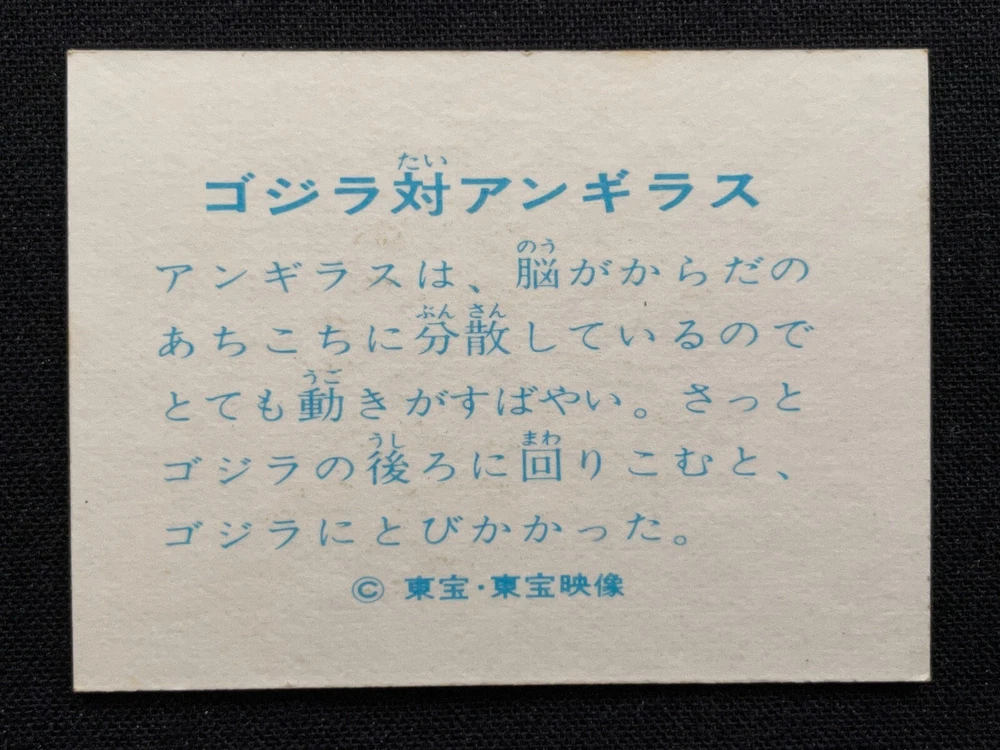 ゴジラ対アンギラス
アンギラスは、脳がからだの
あちこちに分散しているので
とても動きがすばやい。さっと
ゴジラの後ろに回りこむと、
ゴジラにとびかかった。
© 東宝・東宝映像